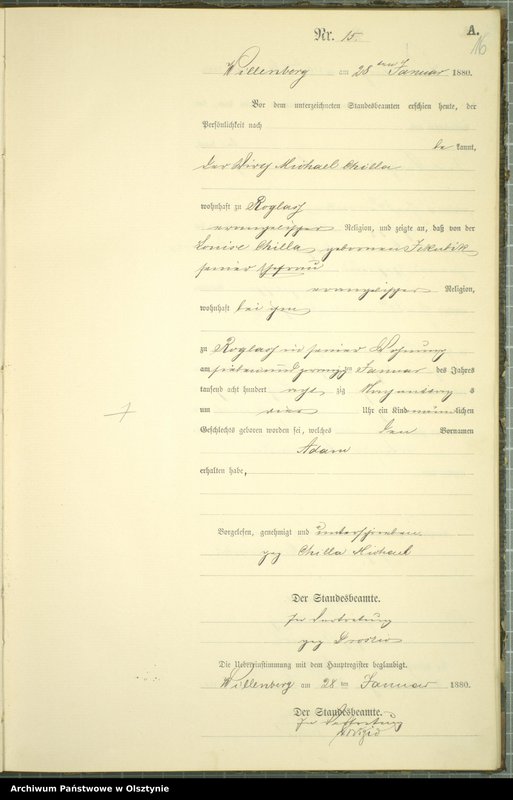 Nr. 15.
A.
16
Willenberg am 28 ten Januar 1880.
Vor dem unterzeichneten Standesbeamten erschien heute, der
Persönlichkeit nach
be kannt,
der Wirth Michael Chilla
wohnhaft zu Roglass
evangelischer Religion, und zeigte an, daß von der
Louise Chilla geborenen Jekubik
seiner Ehefrau
evangelischer Religion,
wohnhaft bei ihm
zu Roglass in seiner Wohnung
am siebenundzwanzig ten Januar des Jahres
tausend acht hundert acht zig Nachmittag s
um vier Uhr ein Kind männlichen
Geschlechts geboren worden sei, welches den Vornamen
Adam
erhalten habe,
Vorgelesen, genehmigt und unterschrieben.
gez Chilla Michael
Der Standesbeamte.
In Vertretung
gez
Die Uebereinstimmung mit dem Hauptregister beglaubigt.
Willenberg am 28 ten Januar 1880.
Der Standesbeamte.
In Vertretung
Archiwum Państwowe w Olsztynie